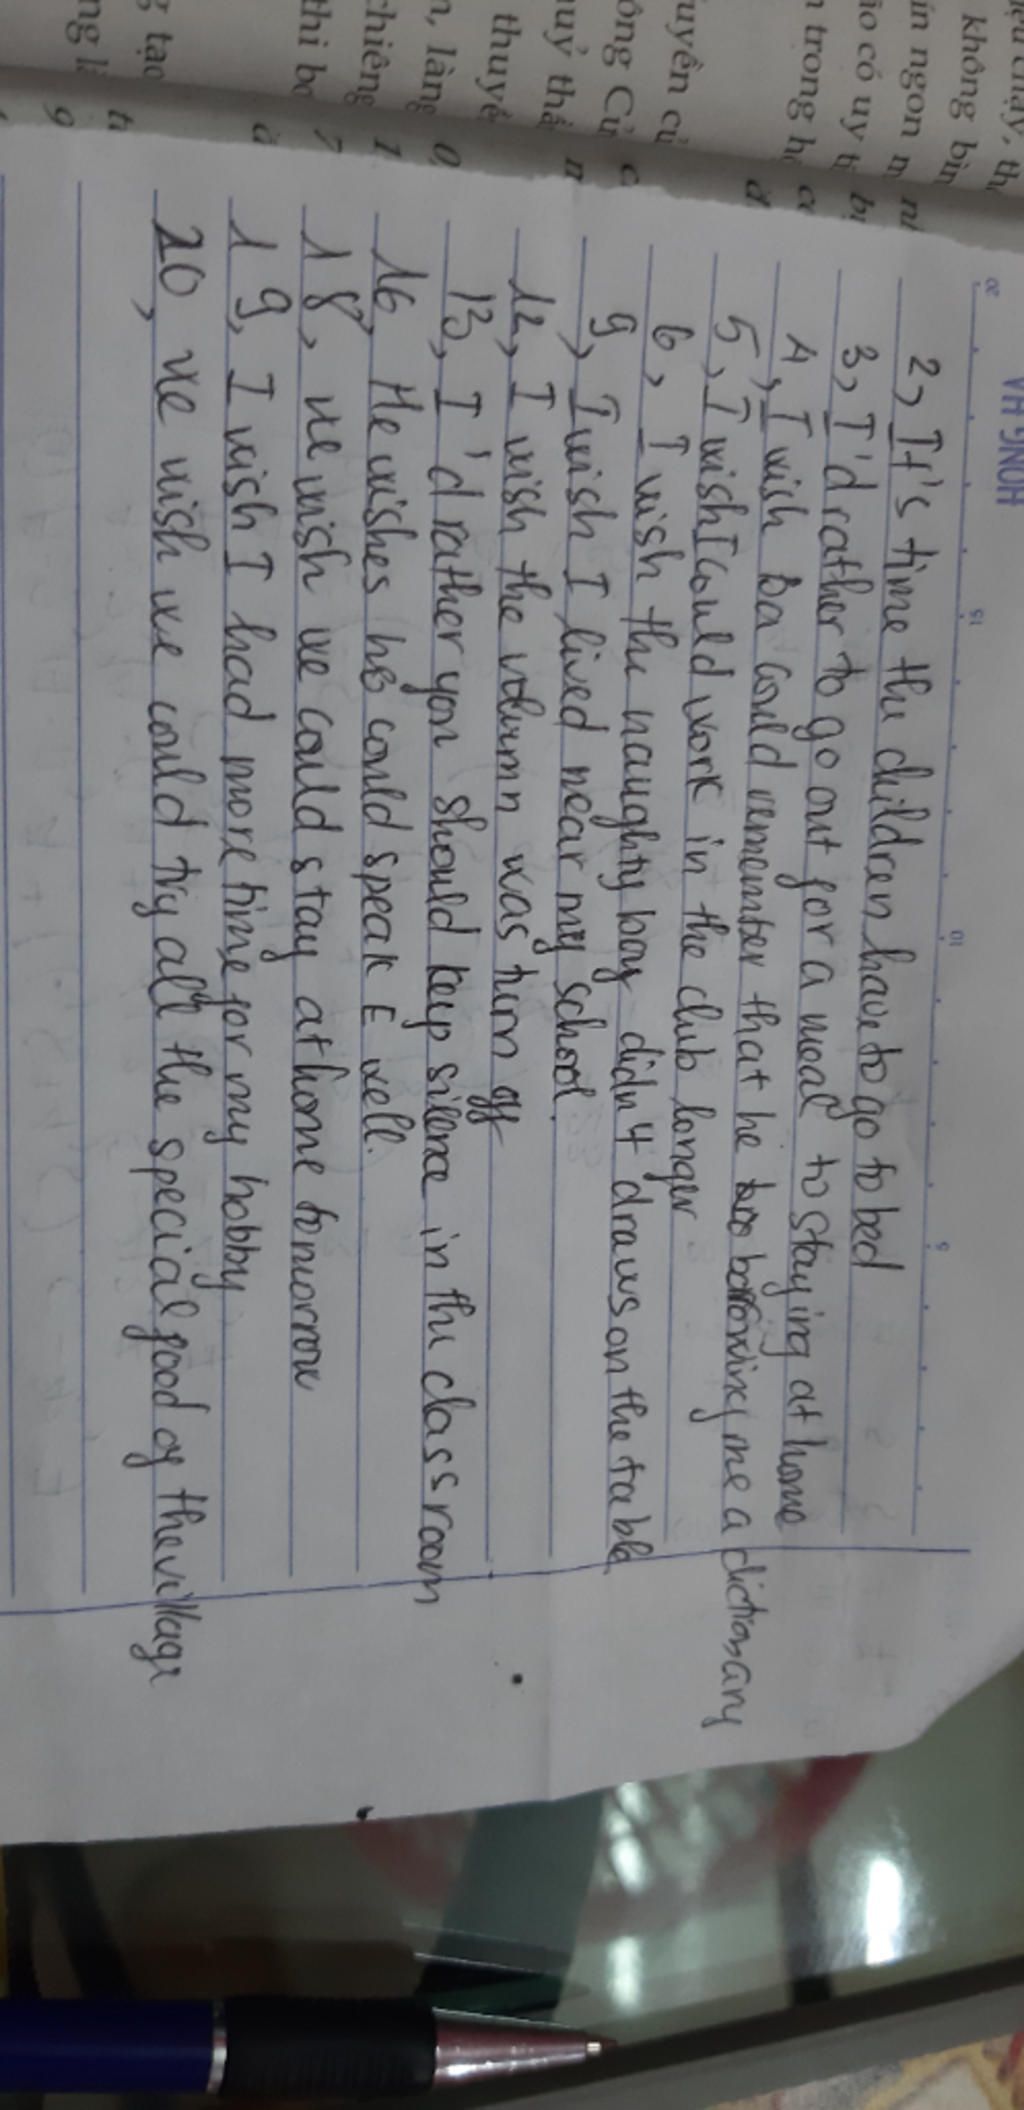 iệu chạy, th
không bìn
ín ngon m
ão có uy ti
n trong h
uyền củ
ông Củ
uỷ thầ
thuyề
n, làng
chiêng
thi bơ
g tạo
ng l
HONG HA
20
15
10
5
2, It's time the children have to go to bed
3, I'd rather to go out for a meal to staying at home
4, I wish Ba could remember that he borrowing me a dictionary
5, I wish I could work in the club longer
6, I wish the naughty boy didn't draws on the table
9, I wish I lived near my school.
12, I wish the volumn was turn off
13, I'd rather you should keep silence in the classroom
16, He wishes he could speak E well.
18, we wish we could stay at home tomorrow
19, I wish I had more time for my hobby
20, we wish we could try all the special food of the village